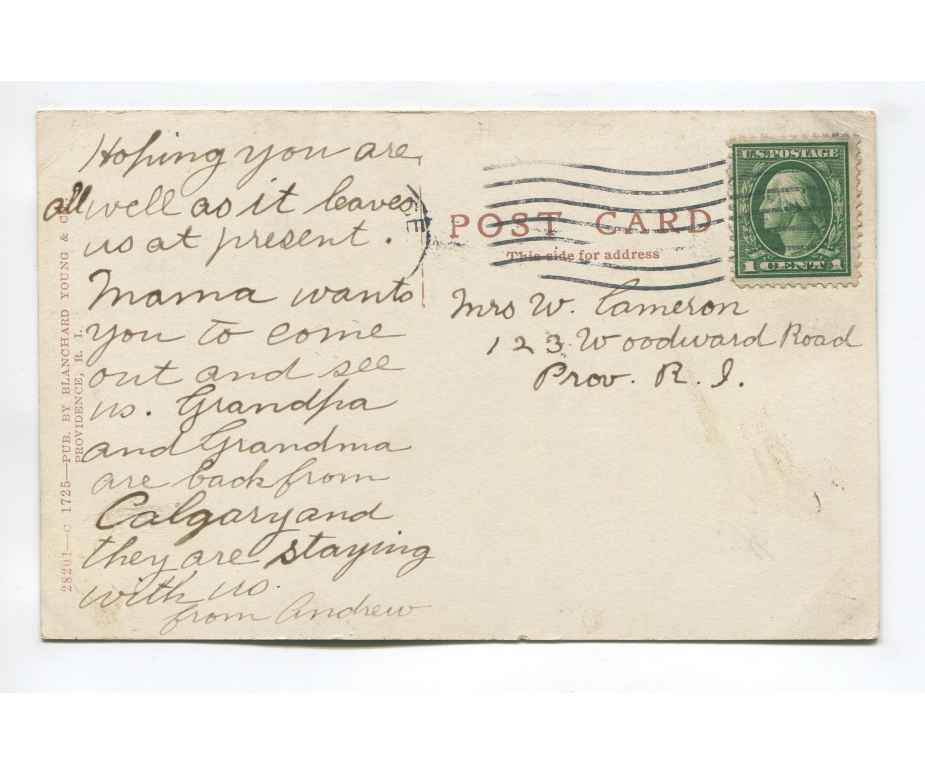 Hoping you are
all well as it leaves
us at present.
Mama wants
you to come
out and see
us. Grandpa
and Grandma
are back from
Calgary and
they are staying
with us.
from Andrew
28201—C 1725—PUB. BY BLANCHARD YOUNG &
PROVIDENCE, R. I.
POST CARD
This side for address
U.S. POSTAGE
1 CENT 1
Mrs W. Cameron
123 Woodward Road
Prov. R. I.